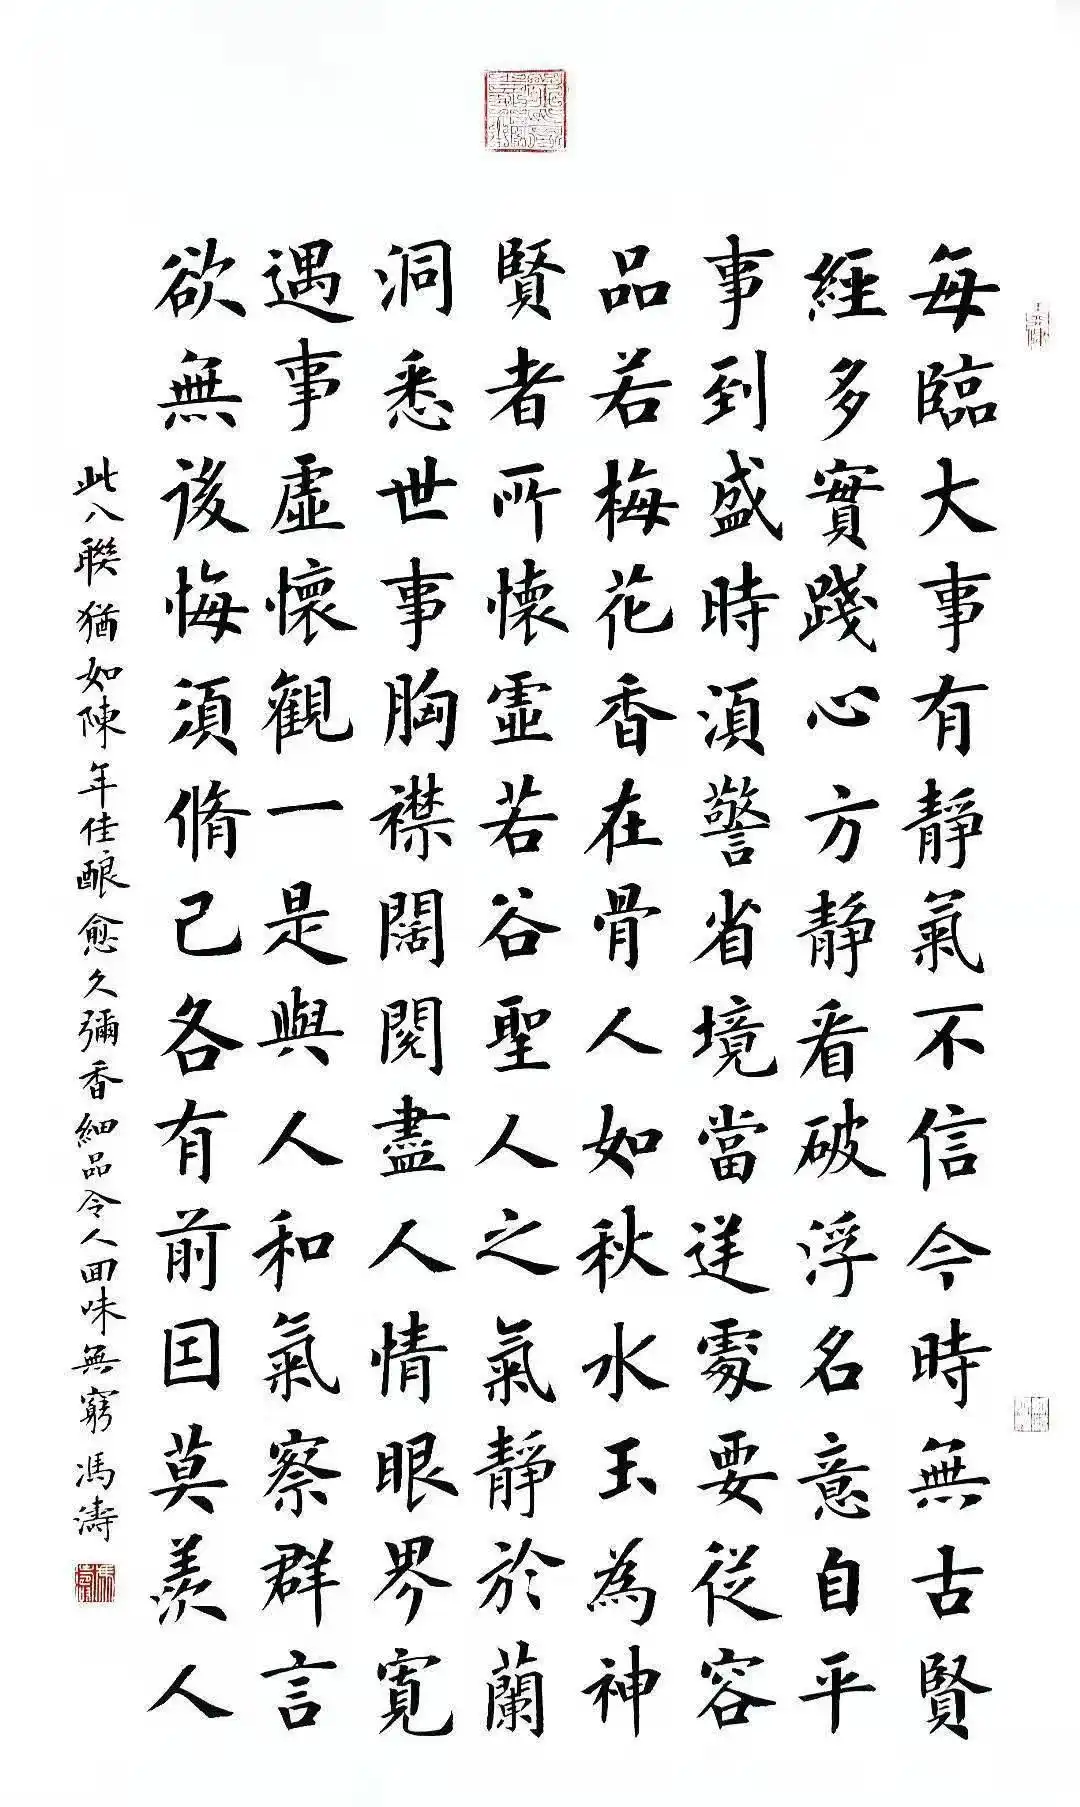 每臨大事有靜氣不信今時無古賢
經多實踐心方靜看破浮名意自平
事到盛時須警省境當逆處要從容
品若梅花香在骨人如秋水玉為神
賢者所懷虛若谷聖人之氣靜於蘭
洞悉世事胸襟闊閱盡人情眼界寬
遇事虛懷觀一是與人和氣察群言
欲無後悔須脩己各有前因莫羨人
此八聯猶如陳年佳酿愈久彌香細品令人回味無窮馮濤